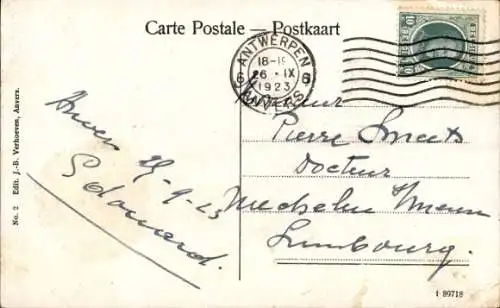 Carte Postale — Postkaart
ANTWERPEN
6 6
18-19
26 · IX
1923
ANVERS
Monsieur
Pierre Smeets
Docteur
Mechelen s/ Meuse
Limbourg.
Anvers 25-9-23
Edouard.
No. 2 Edit. J.-B. Verhoeven, Anvers.
1 89718